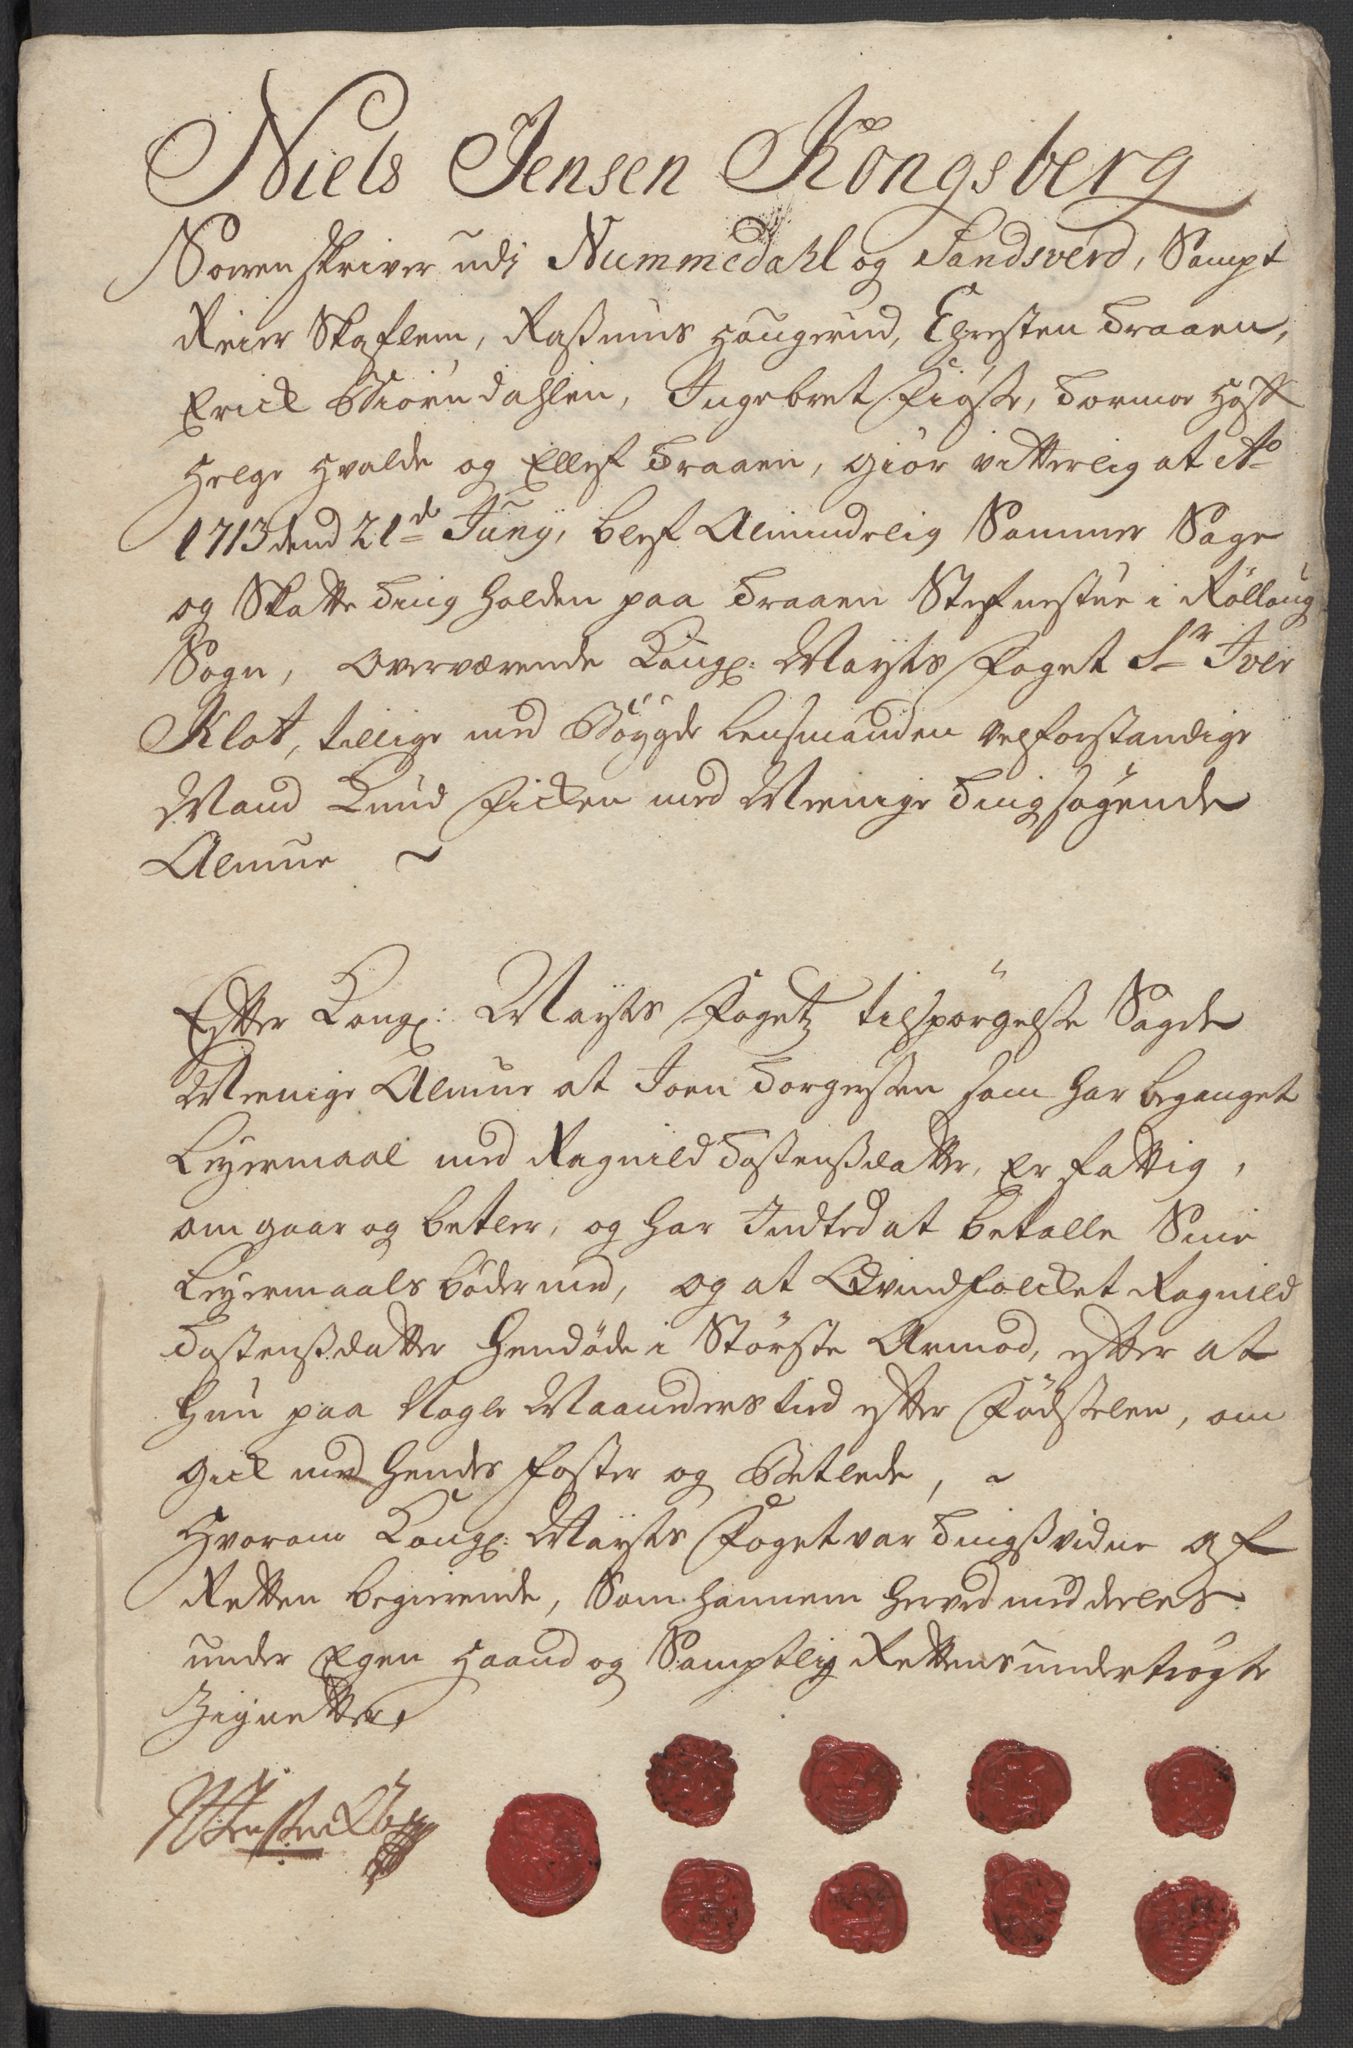 Niels Jensen Kongsberg
Sorrenskriver udj Nummedahl og Sandsverd, Sampt
Reier Skaflem, Raßmus Haugerud, Chresten Traaen,
Erick Biörndahlen, Ingebret Fiøse, Tormoe
Helge Hvalde og Ellef Traaen, giör vitterlig at Ao
1713 dend 21de Junÿ, blef Almindelig Sommer Sage
og Skatte Ting holden paa Traaen Stefnestue i Rollaug
Sogn, Overværende Kongl: Mayts Foget Sr Iver
Klot, tillige med Böygde Lensmanden velforstandige
Mand Knud Ficken med Menige Tingsøgende
Almue ~
Efter Kongl: Mayts Fogetz tilspörgelse Sagde
Menige Almue at Joen Torgersen som har beganget
Leyermaal med Ragnild Tostensdatter, er fattig,
om gaar og betler, og har Indted at betalle Sine
Leyermaals böder med, og at Qvindfolcket Ragnild
Tostensdatter hendöde i Störste Armod, efter at
hun paa Nogle Maaneders tid efter Födselen, om
gick med hendes foster og Betlede, ~
Hvorom Kongl: Mayts Foget var Tingsvidne af
Retten begierende, Som hannem herved meddeeles
under Egen Haand og Samptlig Rettens undertrögte
Zignetter,